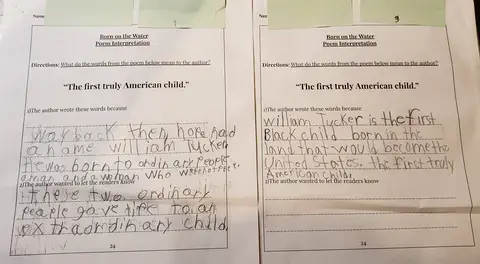 Name
Born on the Water
Poem Interpretation
Directions: What do the words from the poem below mean to the author?
"The first truly American child."
1)The author wrote these words because
Way back then hope had
a name William Tucker
He was born to ordinary people
a man and a woman who
2)The author wanted to let the readers know
these two ordinary
people gave life to an
extraordinary child.
24
9
Born on the Water
Poem Interpretation
Directions: What do the words from the poem below mean to the author?
"The first truly American child."
1)The author wrote these words because
William Tucker is the first
Black child born in the
land that would become the
United States. the first truly
American child.
2)The author wanted to let the readers know
24